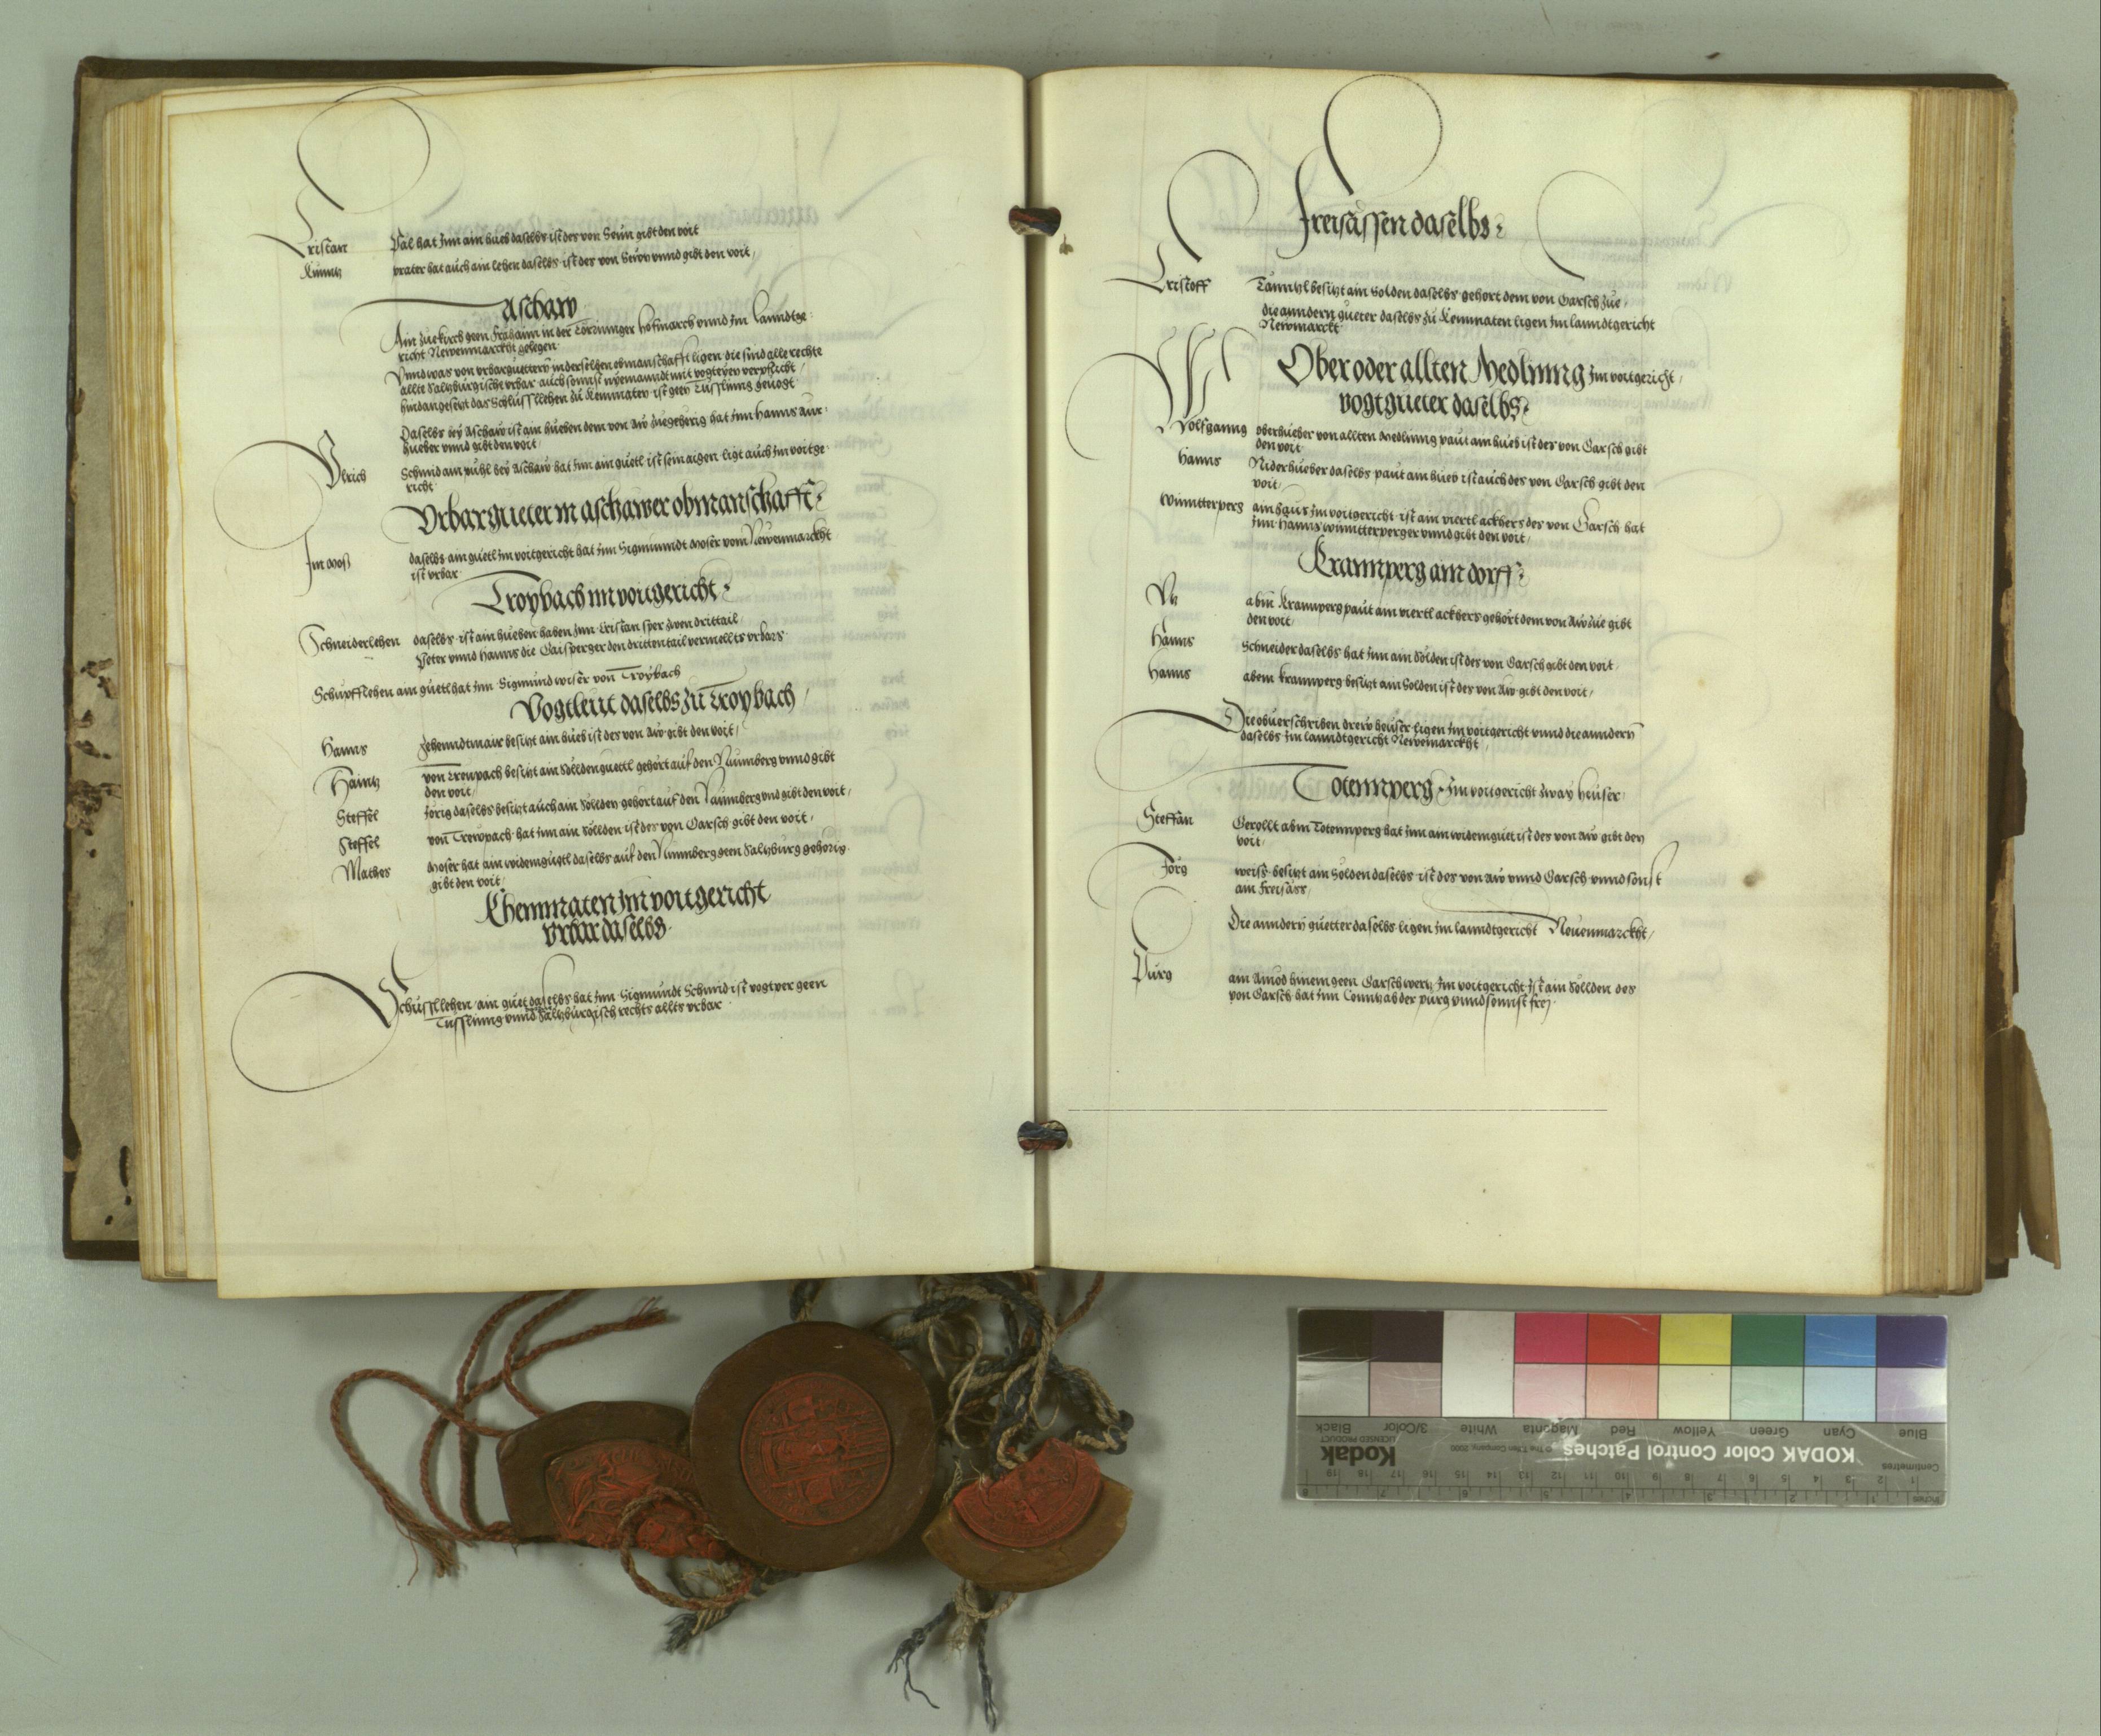 Cristan Päl hat Inn ain hueb daselbs ist des von Seün gibt den voit
Künntz prater hat auch ain lehen daselbs ist des von Seün vnnd gibt den voit
Aschaw
Ain züekirch geen Frähaim in der Törzinnger hofmarch vnnd im lanndtge:
richt Newenmarckht gelegen
Vnnd was von vrbarguettern in derselben obmanschafft ligen die sind alle rechte
allte Saltzburgische vrbar auch sonnst nyemanndt mit vogteyen verpflicht
hindangesetzt das Schlüssllehen zü Kemmaten ist geen Tüsslinng genogt
Daselbs bey Aschaw ist ain hueben dem von Aw zuegehörig hat Inn Hanns aur:
hueber vnnd gibt den voit
Vlrich Schmid am pühl bey Aschaw hat Inn ain guetl ist sein aigen ligt auch Im voitge:
richt
Vrbargueter in aschawer obmanschafft
Im moss daselbs ain guetl im voitgericht hat Inn Sigmunndt moser vom Newenmarckht
ist vrbar
Troybach im voitgericht
Schneiderlehen daselbs ist ain hueben haben Inn Cristan sper zwen drittail
Peter vnnd Hanns die Gaisperger den dritten tail vermellts vrbars
Schupfflehen ain guetl hat Inn Sigmund wiser von Troybach
Vogtleut daselbs zu Troybach
Hanns Zehenndtmair besitzt ain hueb ist des von Aw gibt den voit
Haintz von Treupach besitzt ain Sölldenguettl gehört auf den Nunnberg vnnd gibt
den voit
Steffel Jörig daselbs besitzt auch ain Sollden gehört auf den Nunnberg vnd gibt den voit
Steffel von Trewpach hat Inn ain Sollden ist des von Garsch gibt den voit
Mathes Moser hat ain widemguetl daselbs auf den Nunnberg geen Saltzburg gehörig
gibt den voit
Chemmaten Im voitgericht
vrbar daselbs
Schüssllehen ain guet daselbs hat Inn Sigmundt Schmid ist vogtper geen
Tüsslinng vnnd Saltzburgisch rechts allts vrbar
Freisässen daselbs
Cristoff Tannhl besitzt ain Solden daselbs gehört dem von Garsch zue
die anndern gueter daselbs zu Kemmaten ligen Im lanndtgericht
Newmarckt
Ober oder allten Medlinng Im voitgericht
vogtgueter daselbs
Wolfganng oberhueber von allten Medlinng paut ain hueb ist des von Garsch gibt
den voit
Hanns Niderhueber daselbs paut ain hueb ist auch des von Garsch gibt den
voit
Winntterperg ain haus Im voitgericht ist ain viertl ackhers des von Garsch hat
Inn Hanns winntterperger vnnd gibt den voit
Krannperg am dorff
Vtz abm Krannperg paut ain viertl ackhers gehört dem von Aw zue gibt
den voit
Hanns Schneider daselbs hat Inn ain Sölden ist des von Garsch gibt den voit
Hanns abem krannperg besitzt ain Solden ist des von Aw gibt den voit
Die obuerschriben drew heuser ligen Im voitgericht vnnd die anndern
daselbs Im lanndtgericht Newenmarckht
Totennperg Im voitgericht zway heuser
Steffan Gerollt abm Totennperg hat Inn ain widemguet ist des von Aw gibt den
voit
Jörg weiss besitzt ain Solden daselbs ist des von Aw vnnd Garsch vnnd sonst
ain freisäss
Die anndern guetter daselbs ligen Im lanndtgericht Neuenmarckht
Purg ain Ainöd hinein geen Garsch wertz Im voitgericht Ist ain Sollden des
von Garsch hat Inn Conntz ab der purg vnnd sonnst frey
KODAK Color Control Patches
Kodak
LICENSED PRODUCT
Blue Cyan Green Yellow Red Magenta White 3/Color Black
Centimetres
Inches